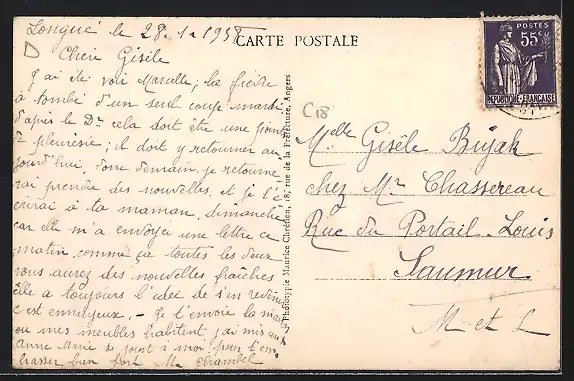 Longué le 28-1-1938
CARTE POSTALE
Chère Gisèle
J'ai été voir Marcelle; la fièvre
a tombé d'un seul coup mardi
d'après le Dr cela doit être une pointe
de pleurésie; il doit y retourner au-
jourd'hui donc demain, je retourne
rai prendre des nouvelles, et je l'é
crirai à ta maman, dimanche
car elle m'a envoyé une lettre ce
matin, comme ça toutes les deux
vous aurez des nouvelles fraîches
elle a toujours l'idée de s'en
c'est ennuyeux. - Je t'envoie la
ou mes meubles habitent j'ai mis une
Anne Marie se joint à moi pour t'em-
brasser bien fort M. Chambel
Phototypie Maurice Chrétien, 18, rue de la Préfecture, Angers
C18
POSTES
55c
REPUBLIQUE FRANÇAISE
Melle Gisèle Bujak
chez Mr Chassereau
Rue du Portail-Louis
Saumur
M et L